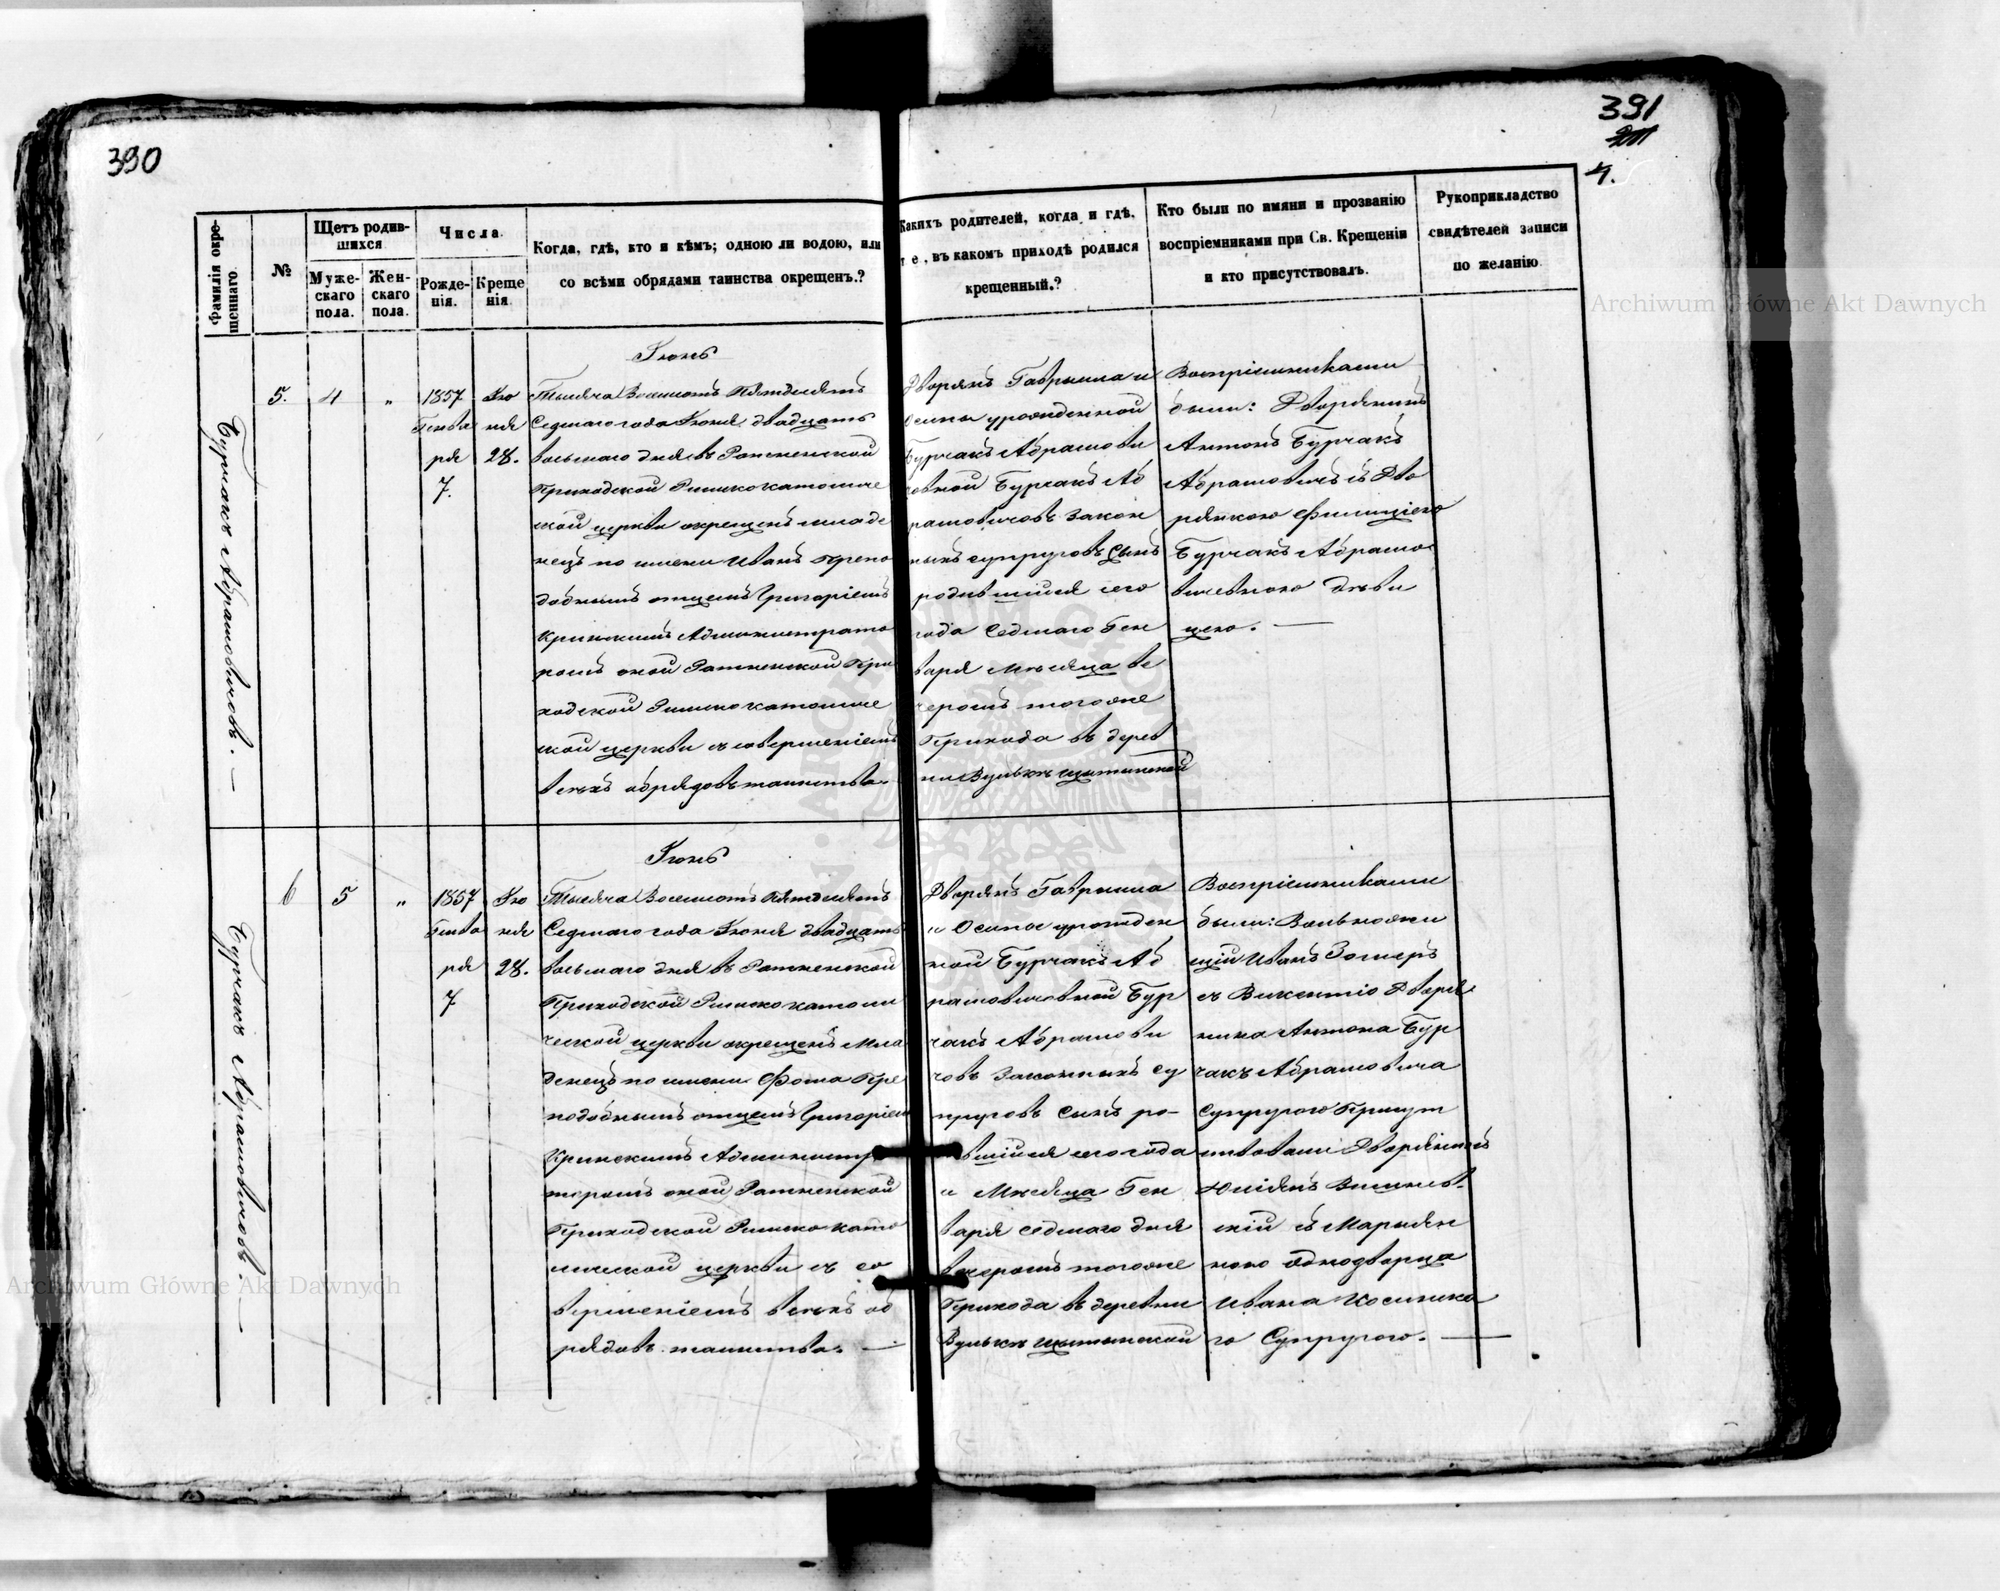 390
391
4.
Фамилія окре-
щеннаго.
№
Щетъ родив-
шихся
Муже-
скаго
пола.
Жен-
скаго
пола.
Числа
Рожде-
нія.
Креще
нія
Когда, гдѣ, кто и кѣмъ; одною ли водою, или
со всѣми обрядами таинства окрещенъ.?
Какихъ родителей, когда и гдѣ,
т е., въ какомъ приходѣ родился
крещенный.?
Кто были по имяни и прозванію
воспріемниками при Св. Крещеніи
и кто присутствовалъ.
Рукоприкладство
свидѣтелей записи
по желанію.
Бурчакъ Абрамовичовъ. —
5.
4
"
1857
Генва
ря
7.
Ію
ня
28.
Іюнь
Тысяча Восемсотъ Пятдесятъ
Седмаго года Іюня двадцать
восьмаго дня въ Ратненской
Приходской Римско католиче
ской церкви окрещенъ младе
нецъ по имени Иванъ Препо
добнымъ отцемъ Григоріемъ
Кринскимъ Администрато
ромъ оной Ратненской При
ходской Римско католиче
ской церкви съ совершеніемъ
всехъ обрядовъ таинства.
Дворянъ Гаврыила и
Осипы урожденной
Бурчакъ Абрамови
човной Бурчакъ Аб
рамовичовъ Закон
ныхъ супруговъ Сынъ
родившійся сего
года Седмаго Ген
варя Мѣсяца ве
черомъ тогоже
Прихода въ дерев
ни Вулькѣ Щитинской
Воспріемниками
были: Дворянинъ
Антонъ Бурчакъ
Абрамовичъ съ Дво
рянкою Фелиціею
Бурчакъ Абрамо
вичевною Дѣви
цею. —
Бурчакъ Абрамовичовъ —
6
5
"
1857
Генва
ря
7
Ію
ня
28.
Іюнь
Тысяча Восемсотъ Пятдесятъ
Седмаго года Іюня двадцать
восьмаго дня въ Ратненской
Приходской Римско католи
ческой церкви окрещенъ Мла
денецъ по имени Фома Пре
подобнымъ отцемъ Григоріем
Кринскимъ Администра
торомъ оной Ратненской
Приходской Римско като
лической церкви съ со
вершеніемъ всехъ об
рядовъ таинства. —
Дворянъ Гаврыила
и Осипы урожден
ной Бурчакъ Аб
рамовичовной Бур
чакъ Абрамови
човъ Законныхъ су
пруговъ Сынъ ро-
вшійся сего года
и Мѣсяца Ген
варя седмаго дня
вечеромъ тогоже
Прихода въ деревни
Вулькѣ Щитинской
Воспріемниками
были: Вольножи
щій Иванъ
съ Викентіо Дворя
нина Антона Бур
чакъ Абрамовича
Супругою Присут
ствовали Дворянинъ
Юліянъ
скій съ Марыян
ною Однодворца
Ивана
го Супругою. —
Archiwum Główne Akt Dawnych
Archiwum Główne Akt Dawnych